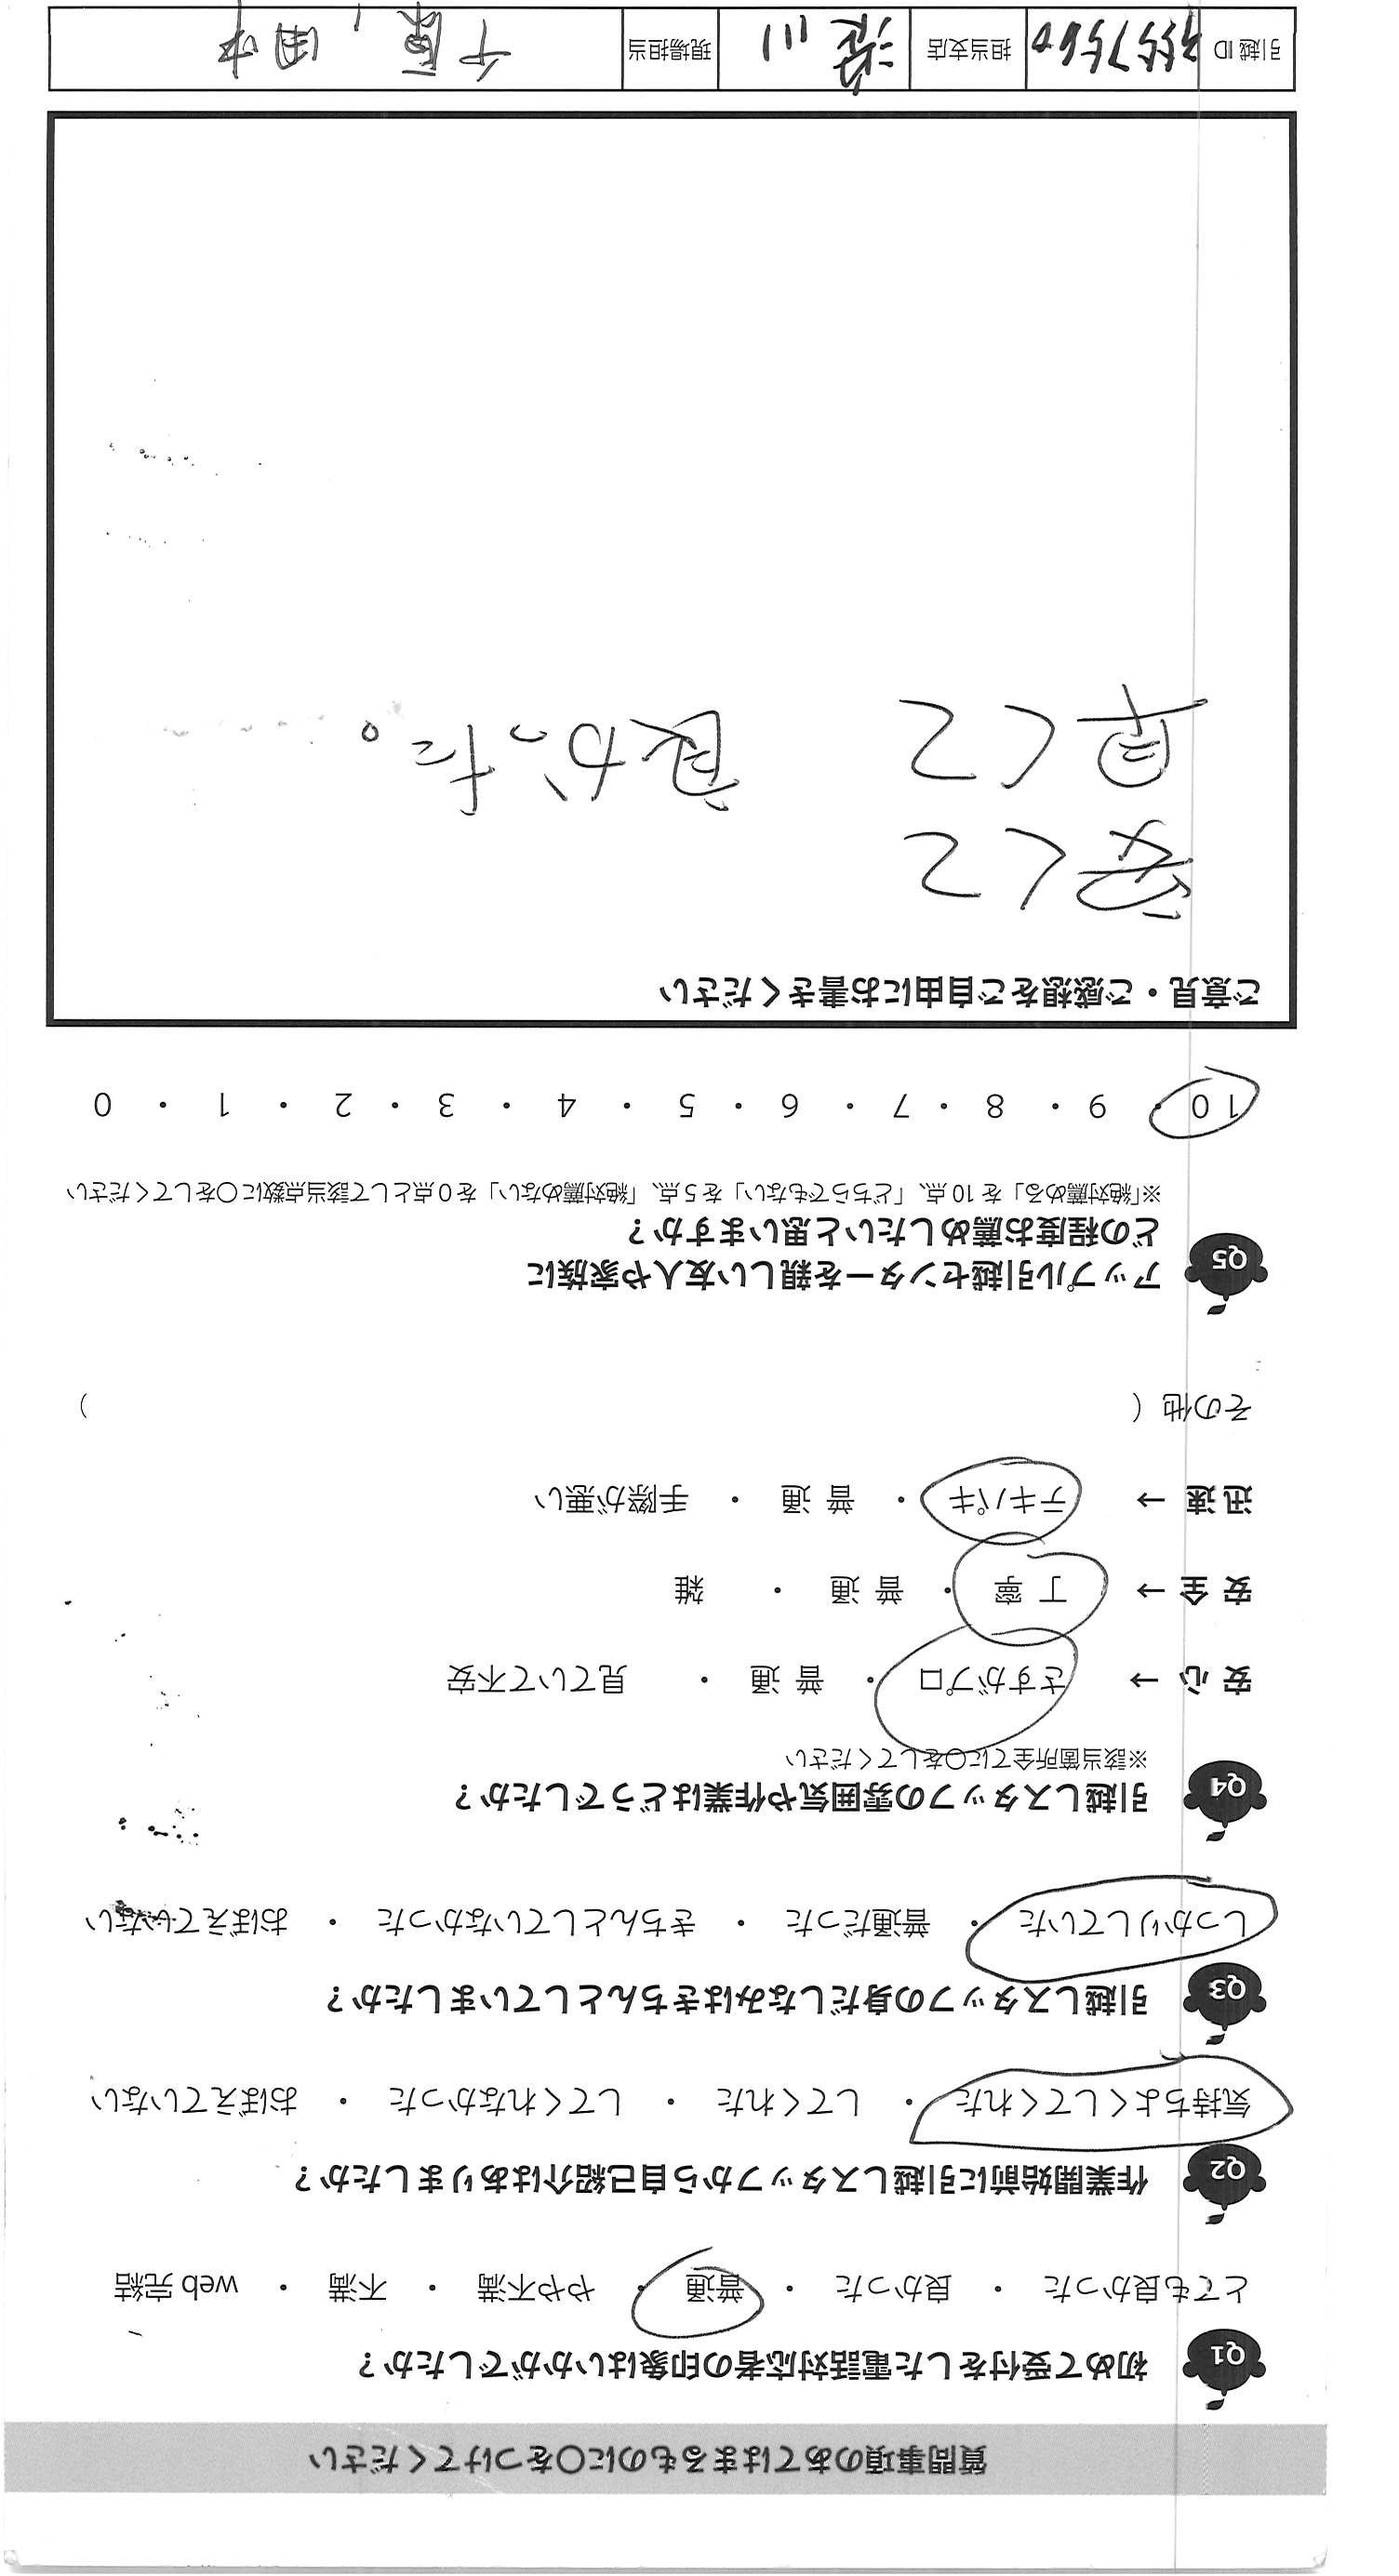 質問事項のあてはまるものに〇をつけてください
Q1 初めて受付をした電話対応者の印象はいかがでしたか？
とても良かった ・ 良かった ・ 普通 ・ やや不満 ・ 不満 ・ web 完結
Q2 作業開始前に引越しスタッフから自己紹介はありましたか？
気持ちよくしてくれた ・ してくれた ・ してくれなかった ・ おぼえていない
Q3 引越しスタッフの身だしなみはきちんとしていましたか？
しっかりしていた ・ 普通だった ・ きちんとしていなかった ・ おぼえていない
Q4 引越しスタッフの雰囲気や作業はどうでしたか？
※該当箇所全てに〇をしてください
安 心 → さすがプロ ・ 普 通 ・ 見ていて不安
安 全 → 丁 寧 ・ 普 通 ・ 雑
迅 速 → テキパキ ・ 普 通 ・ 手際が悪い
その他（ ）
Q5 アップル引越センターを親しい友人や家族に
どの程度お薦めしたいと思いますか？
※「絶対薦める」を 10 点、「どちらでもない」を 5 点、「絶対薦めない」を 0 点として該当点数に〇をしてください
10 ・ 9 ・ 8 ・ 7 ・ 6 ・ 5 ・ 4 ・ 3 ・ 2 ・ 1 ・ 0
ご意見・ご感想をご自由にお書きください
安くて
早くて 良かった。
引越 ID 担当支店 現場担当 田中